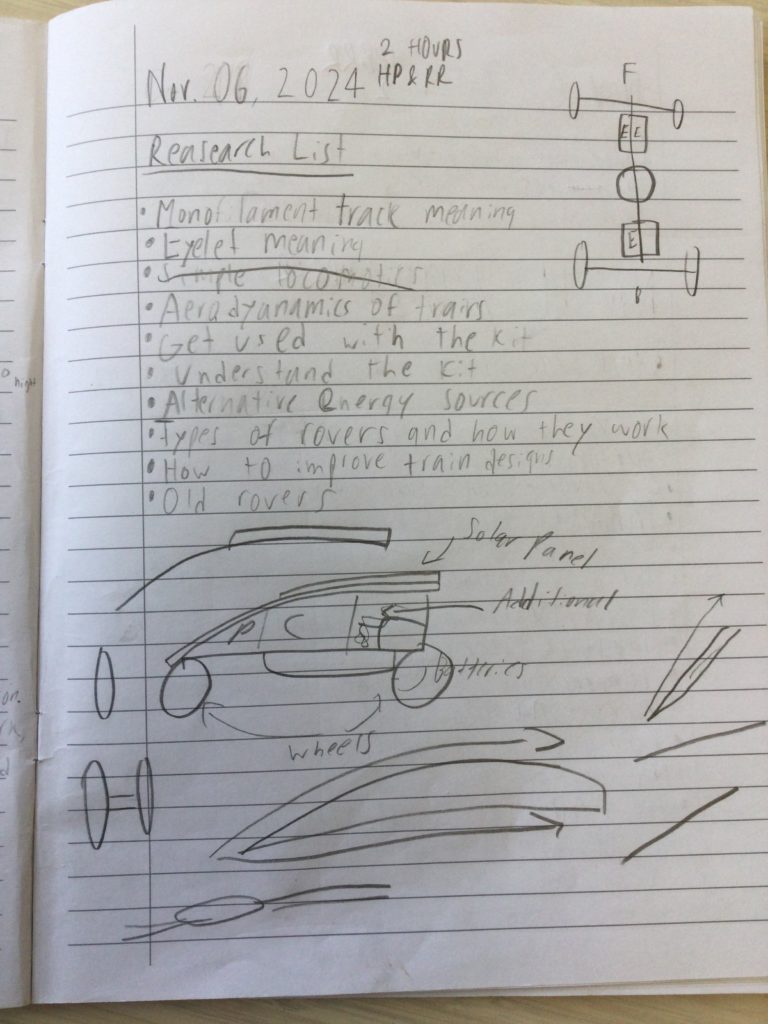 2 HOURS
Nov. 06, 2024 HP & RR
F
E E
Reasearch List
• Monofilament track meaning
• Eyelet meaning
• Simple locomotics
E
• Aerodyanamics of trains
• Get used with the kit
• Understand the kit
• Alternative Energy sources
• Types of rovers and how they work
• How to improve train designs
• Old rovers
Solar Panel
Additional
P C
batteries
wheels
night